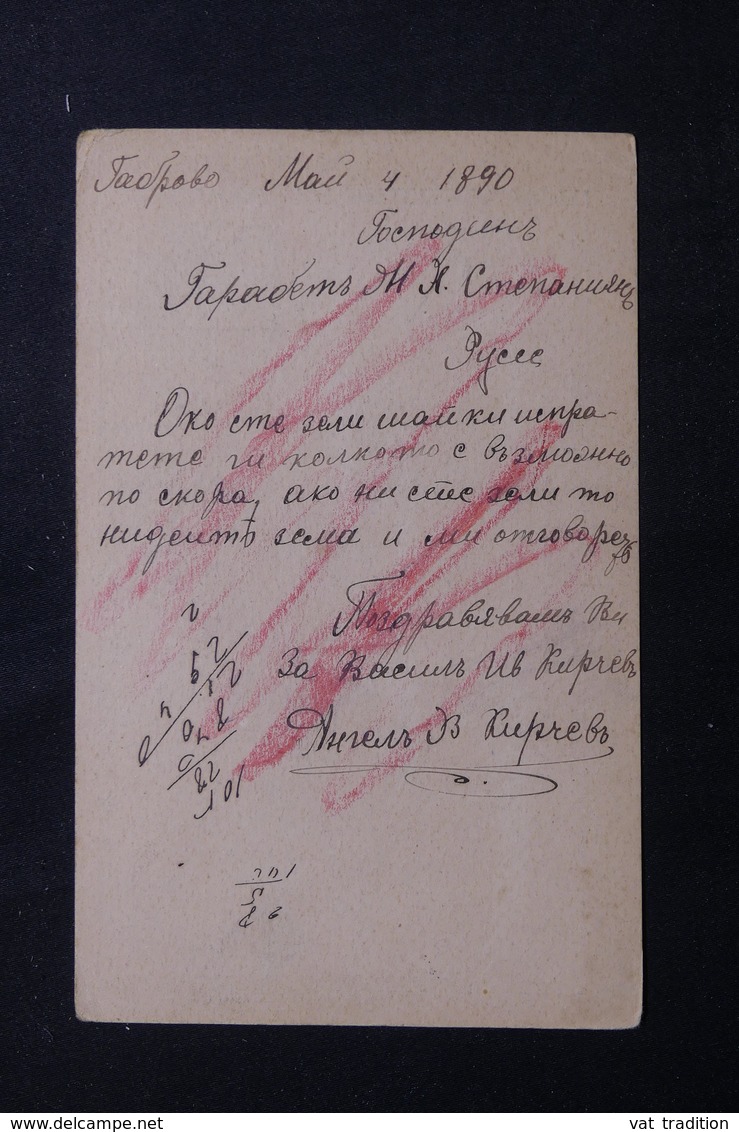 Габрово Май 4 1890
Господинъ
Гарабетъ Х. Степаниянъ
Русе
Око сте зели шайки испра-
тете ги колкото е възможно
по скора, ако ни сте зели то
нидеите зема и ми отговорете
Поздравявамъ Ви
За Василъ Ив Кирчевъ
Ангелъ В Кирчевъ
vat tradition